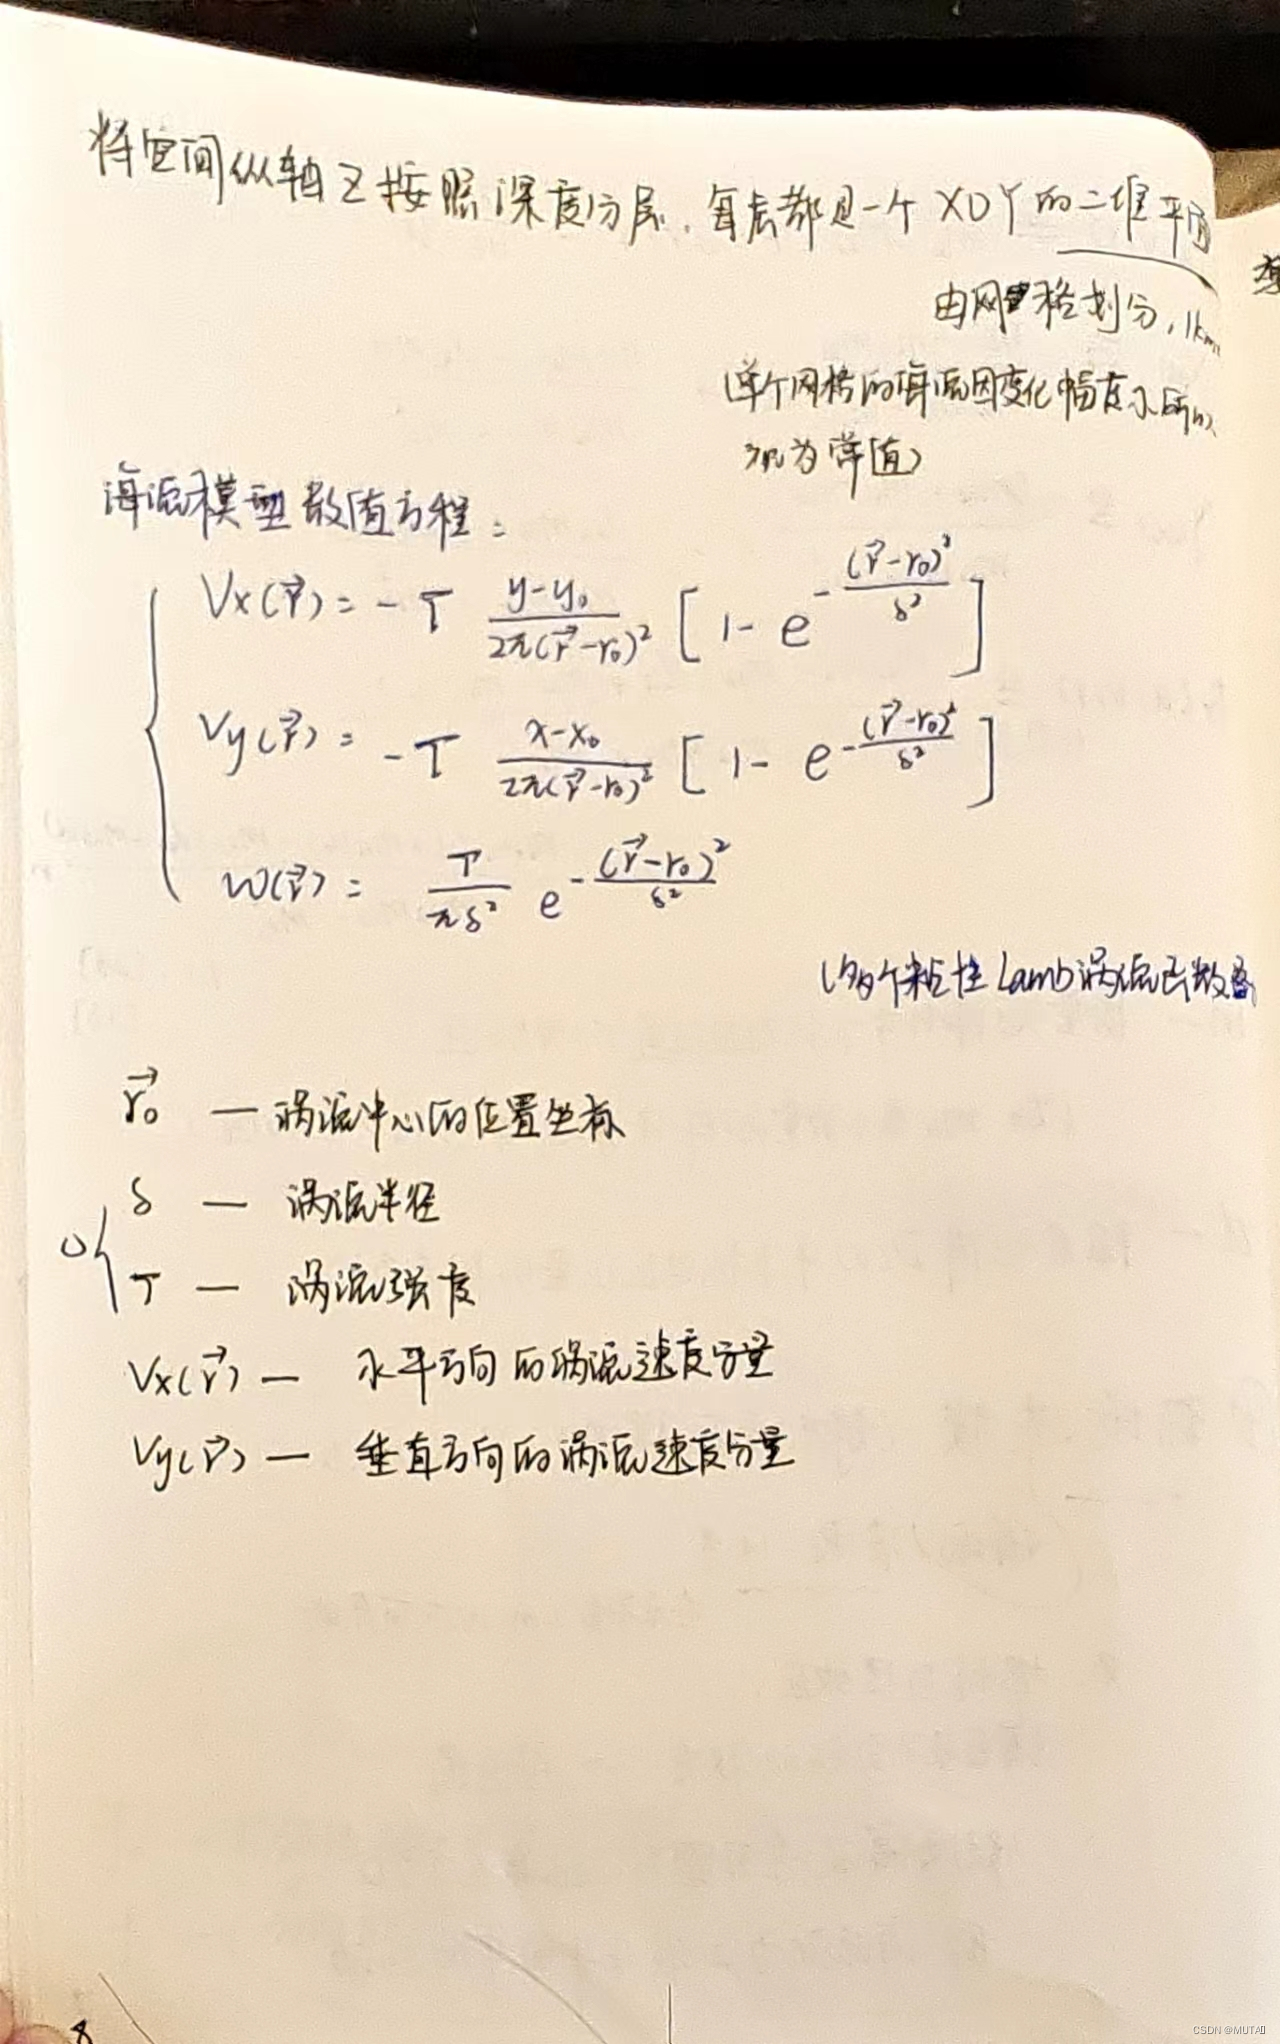 将空间纵轴Z按照深度分层，每层都是一个XOY的二维平面
由网格划分，1km
(单个网格的海流因变化幅度小所以
视为常值)
海流模型数值方程：
Vx(r⃗) = -T (y-y₀)/(2π(r⃗-r₀)²) [1 - e^(-(r⃗-r₀)²/δ²)]
Vy(r⃗) = -T (x-x₀)/(2π(r⃗-r₀)²) [1 - e^(-(r⃗-r₀)²/δ²)]
w(r⃗) = T/(πδ²) e^(-(r⃗-r₀)²/δ²)
(多个粘性Lamb涡流函数
r⃗₀ — 涡流中心的位置坐标
δ — 涡流半径
T — 涡流强度
Vx(r⃗) — 水平方向的涡流速度分量
Vy(r⃗) — 垂直方向的涡流速度分量
8
CSDN @MUTA